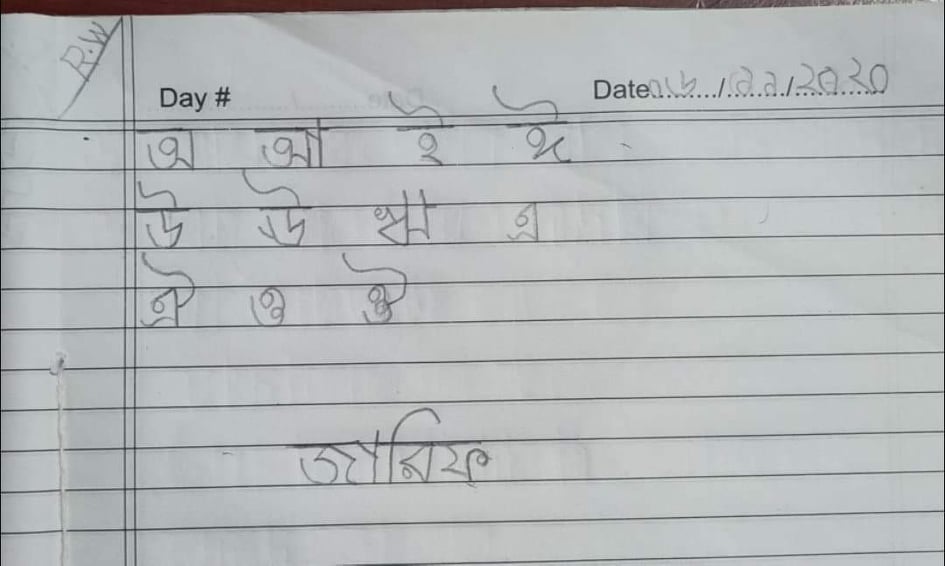 R.W
Day # Date ০৬/১১/২০২০
অ আ ই ঈ
উ ঊ ঋ এ
ঐ ও ঔ
জানিফ